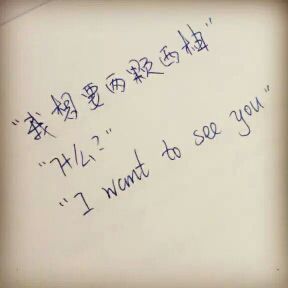 "我想要两颗西柚"
"什么?"
"I want to see you"